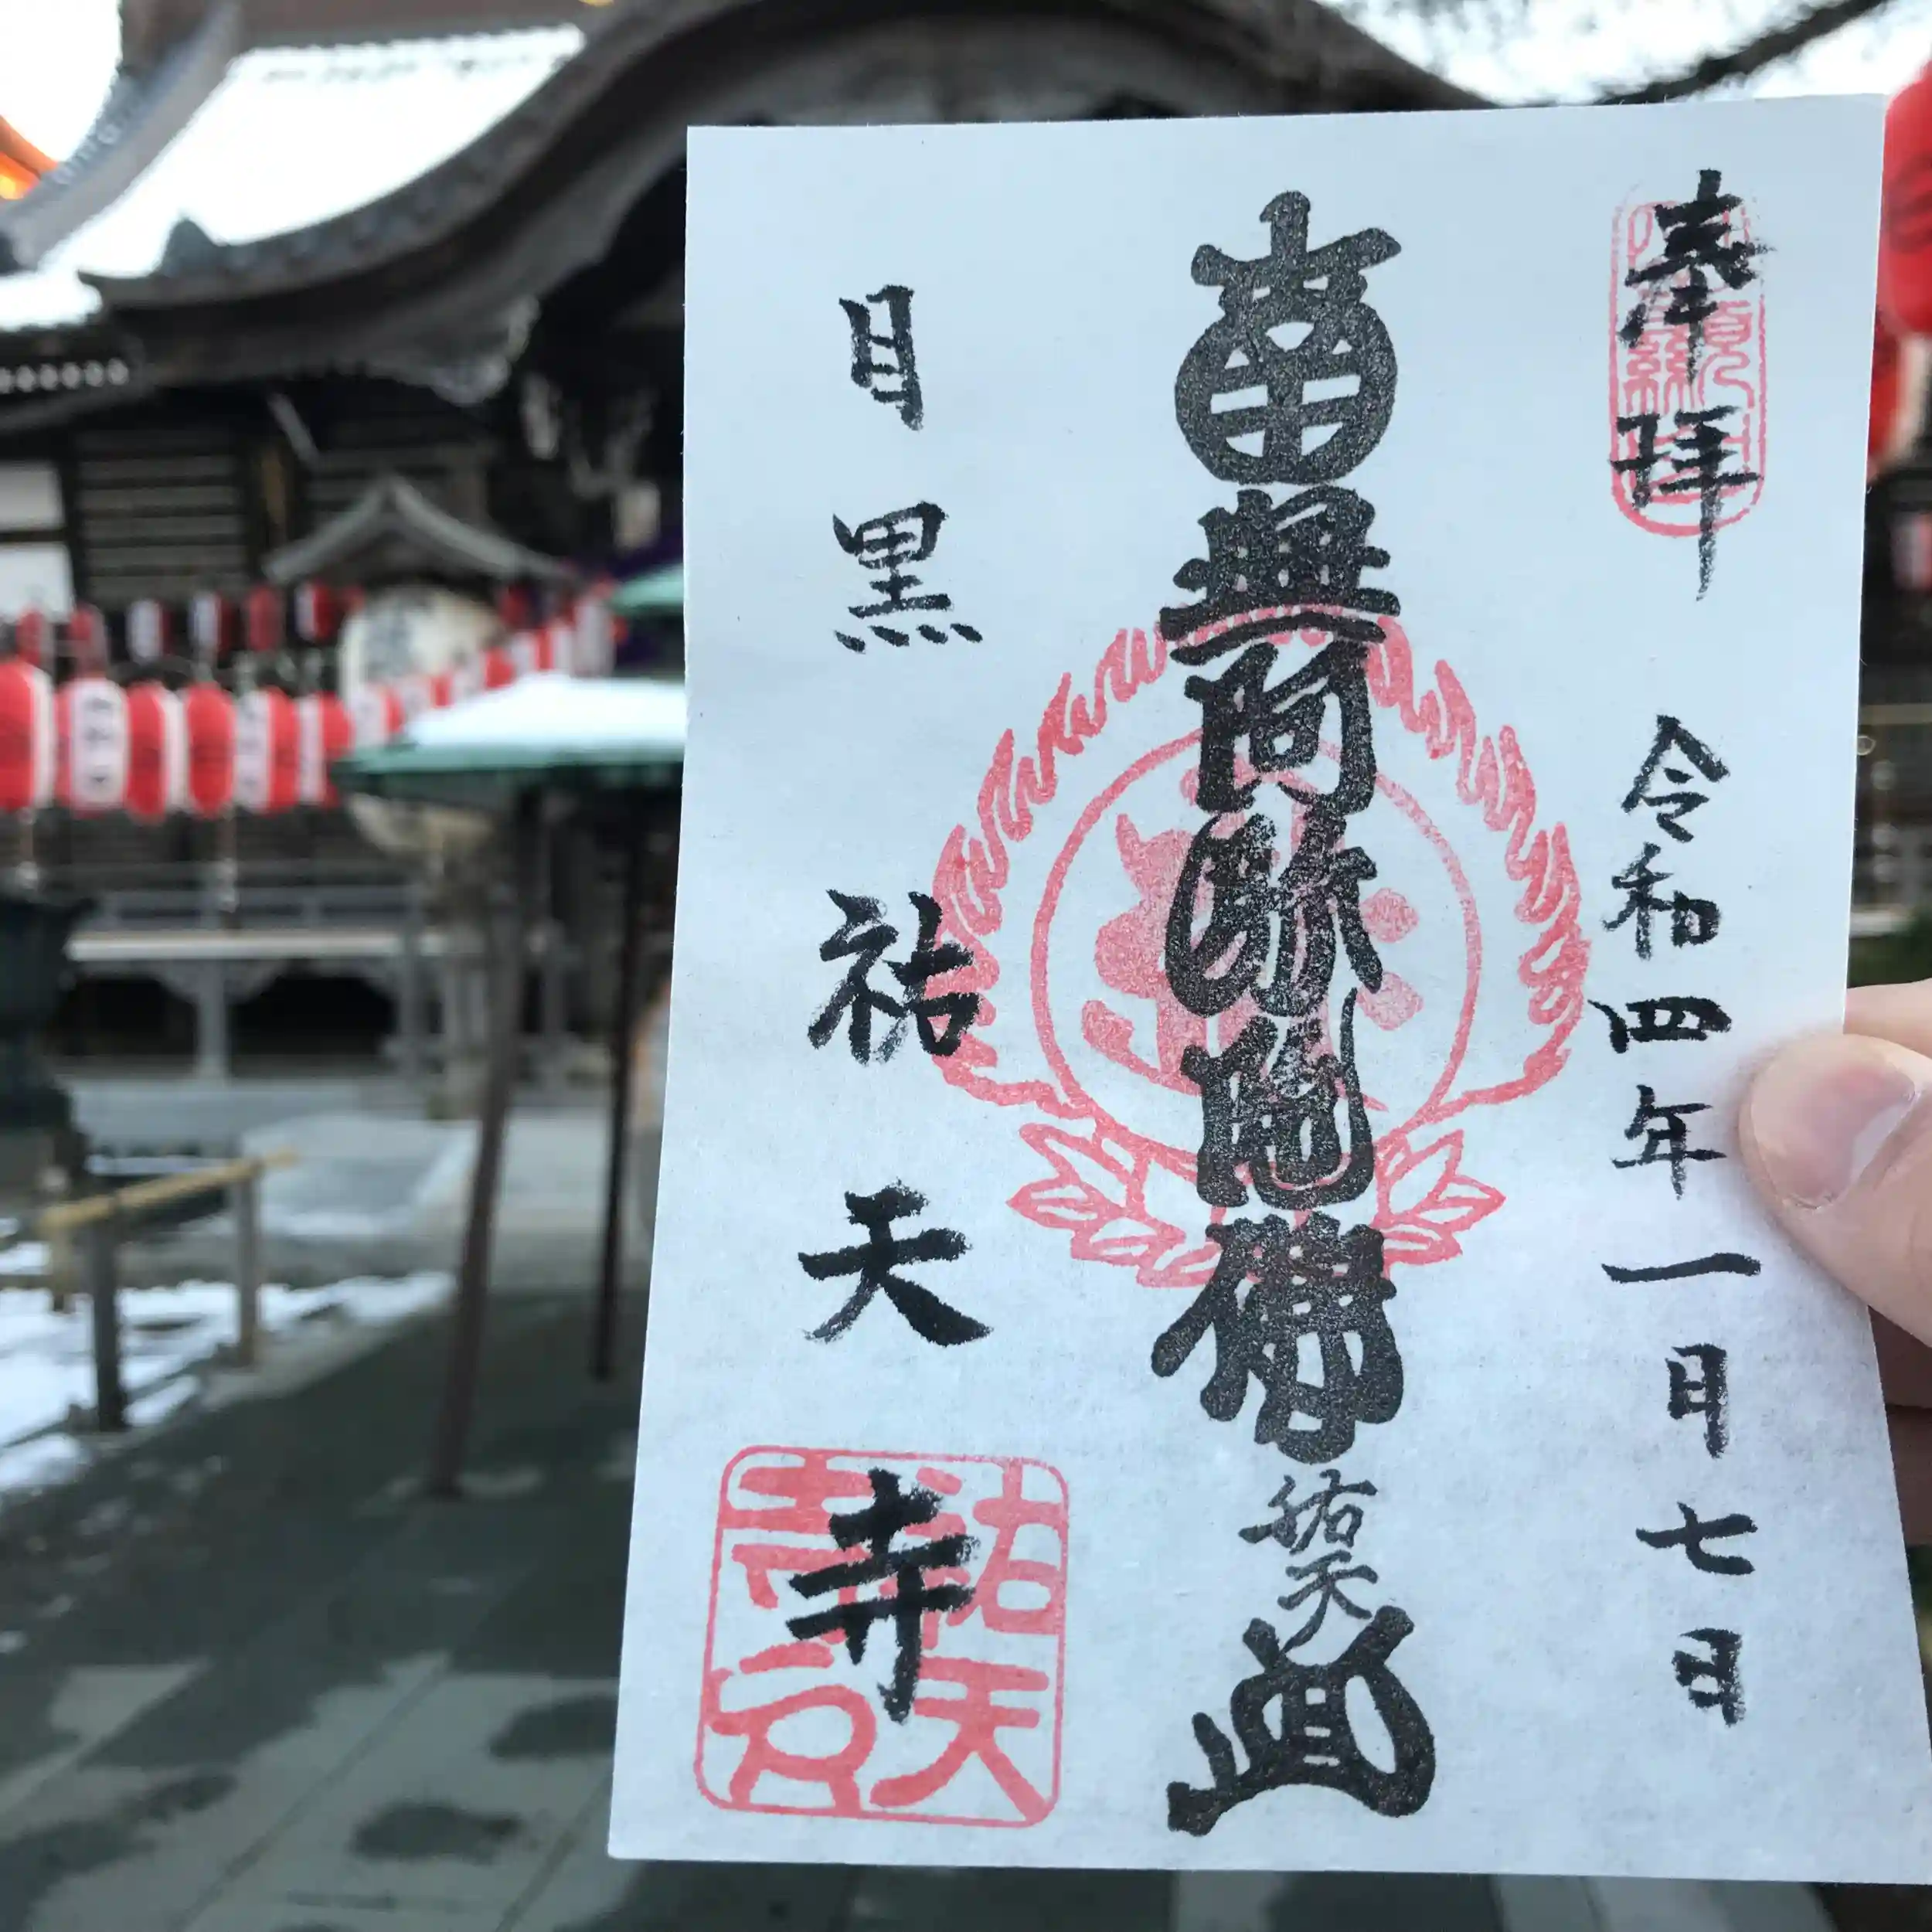 奉拝
令和四年一月七日
南無阿弥陀佛
祐天
目黒
祐天寺
祐天寺印